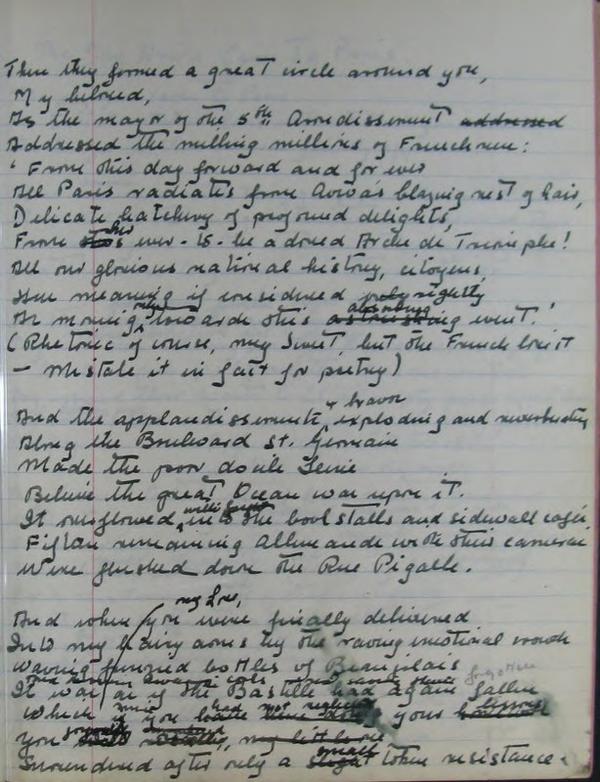 Then they formed a great circle around you,
My beloved,
As the mayor of the 5th Arondissement addressed
Addressed the milling millions of Frenchmen:
'From this day forward and for ever
All Paris radiates from Aviva's blazing nest of hair,
Delicate hatchery of profound delights,
From her ever-to-be adored Arche de Triomphe!
All our glorious national history, citoyens,
Has meaning if considered rightly
As moving only towards this absorbing event.'
(Rhetoric of course, my Sweet, but the French love it
— Mistake it in fact for poetry)
And the applaudissements, & bravos exploding and reverberating
Along the Boulevard St. Germain
Made the poor docile Seine
Believe the great Ocean was upon it.
It overflowed into the bookstalls and sidewalk cafés,
Fifteen remaining Allemands with their cameras
Were flushed down the Rue Pigalle.
And when my Love, you were finally delivered
Into my hairy arms by the raving emotional crowds
Waving bottles of Beaujolais
It was as if the Bastille had again fallen
Which had not your
You
Surrendered after only a small token resistance.